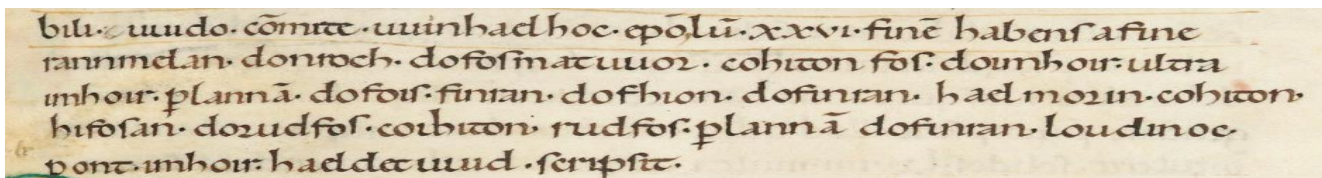 bili· uuido· cōmite· uuinhaelhoc· epō lū· xxvi· finē habens a fine
rannmelan· donroch· dofosmatuuor· cohiton fos· doimhoir· ultra
imhoir· ꝑlannā· dofois· finran· dofhion· dofinran· haelmorin· cohiton·
hifosan· dorudfos· coihiton· rudfos· ꝑlannā dofinran· loudinoc·
pont· imhoir· haeldetuuid· scripsit·